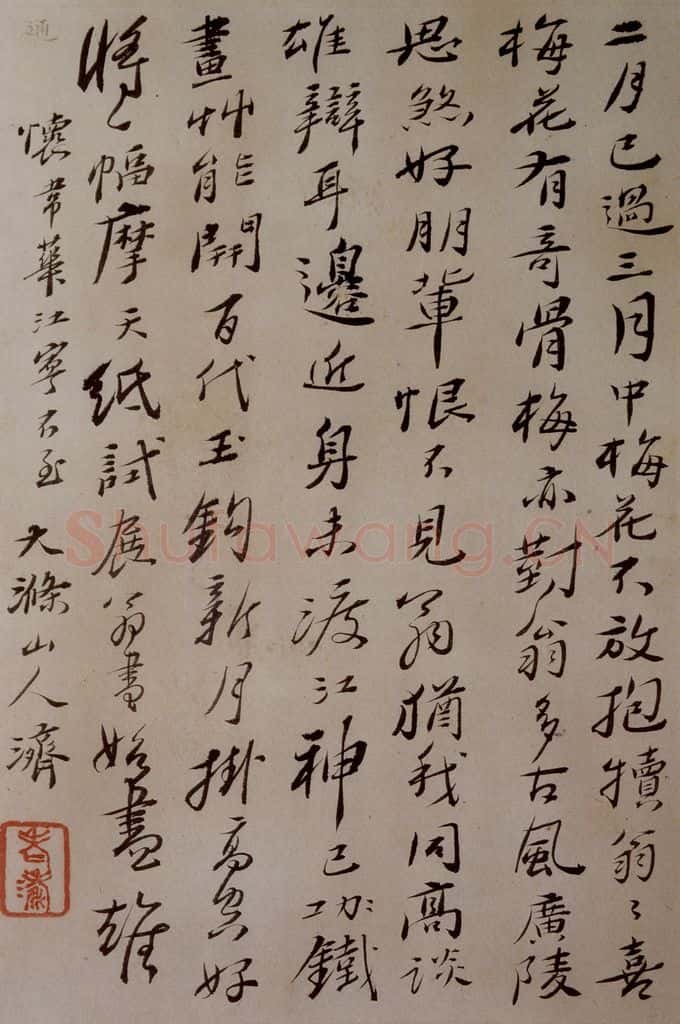 二月已過三月中梅花不放抱犢翁〻喜
梅花有奇骨梅亦對翁多古風廣陵
思煞好朋輩恨不見翁猶我同高談
雄辯耳邊近身未渡江神已功鐵
畫艸能開百代玉鈎新月掛高空好
將〻幅摩天紙試展翁書始盡雄
懷韋華江寧不至
大滌山人濟
Shufawang.CN